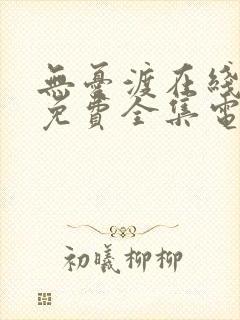 無憂渡在綫
免費全集電
初曦柳柳